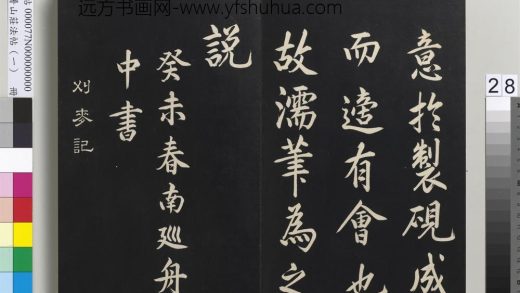 远方书画网-www.yfshuhua.com
意於製硯成
而適有會也
故濡筆為之
説
癸未春南廵舟
中書
刈麥記
28